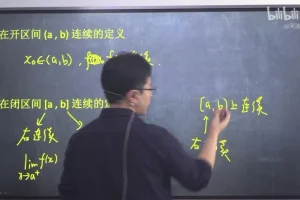 在开区间 (a, b) 连续的定义
x₀∈(a,b),
在闭区间 [a, b] 连续的
右连续
lim f(x)
x→a⁺
[a,b)上连续
右 续
bilibili